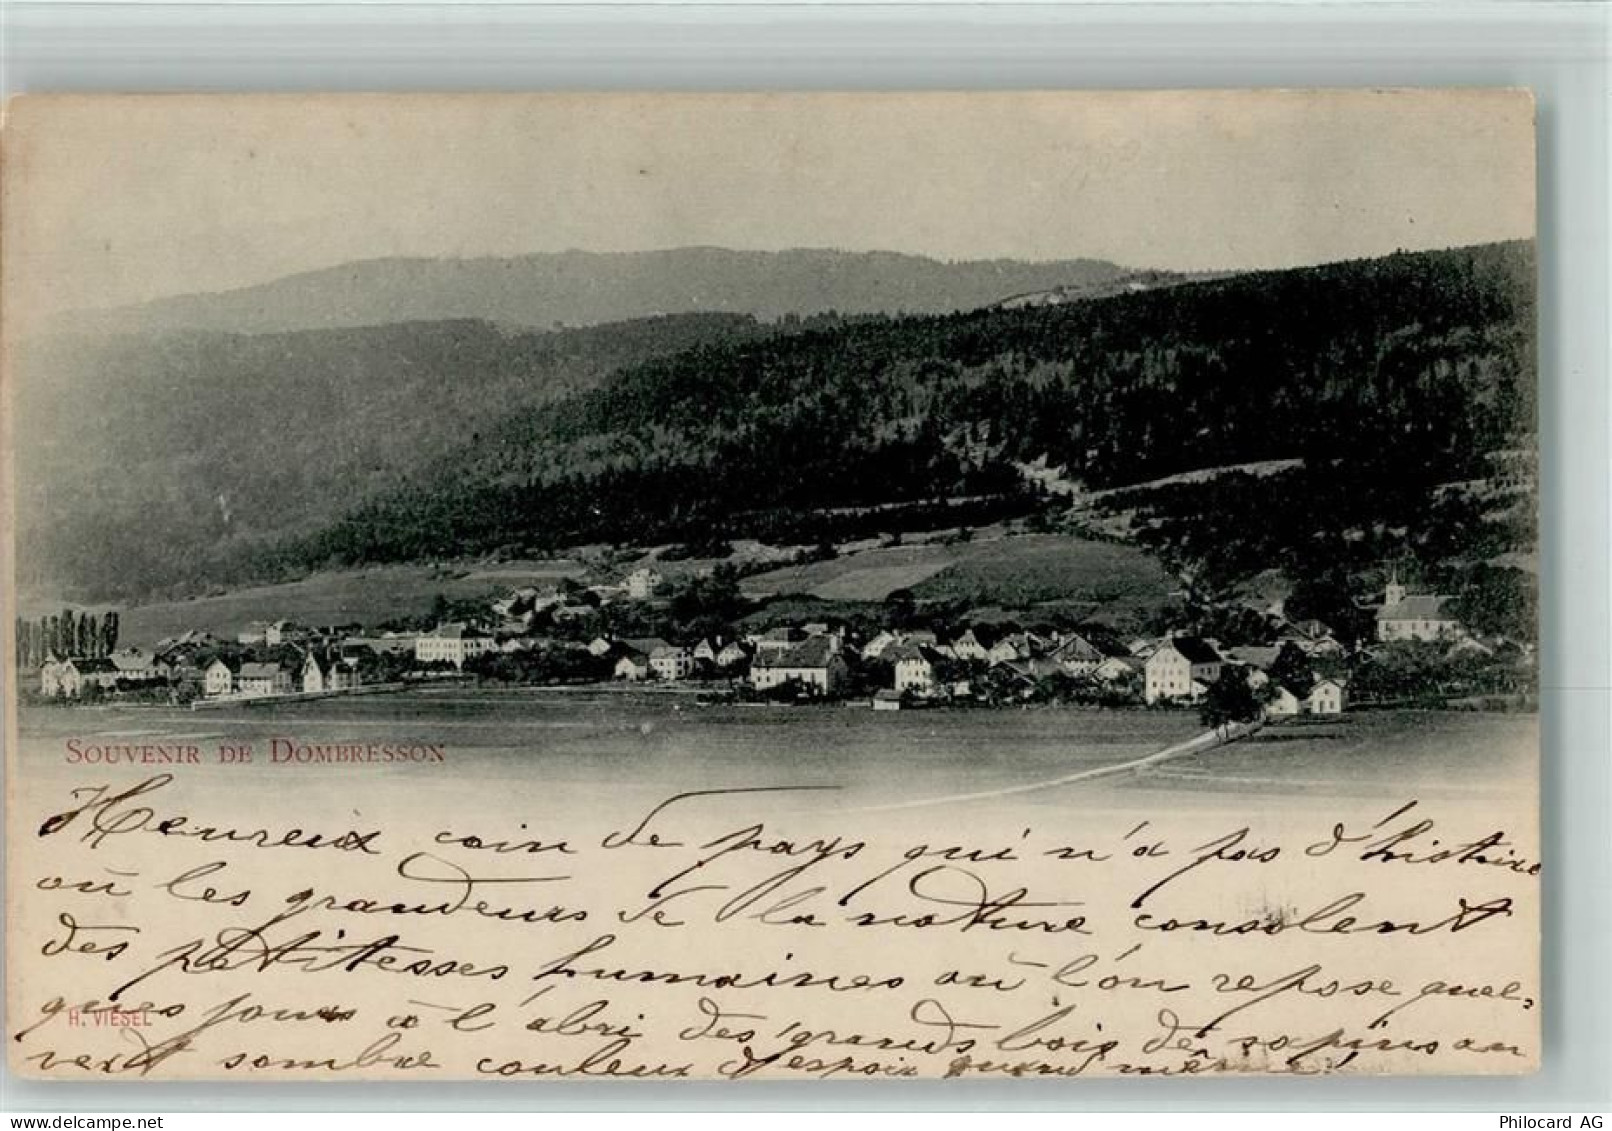 SOUVENIR DE DOMBRESSON
Heureux coin de pays qui n'a pas d'histoire
où les grandeurs de la nature consolent
des petitesses humaines où l'on repose quel=
ques jours à l'abri des grands bois de sapins au
H. VIESEL
vert sombre couleur d'espoir quand même!
www.delcampe.net
Philocard AG